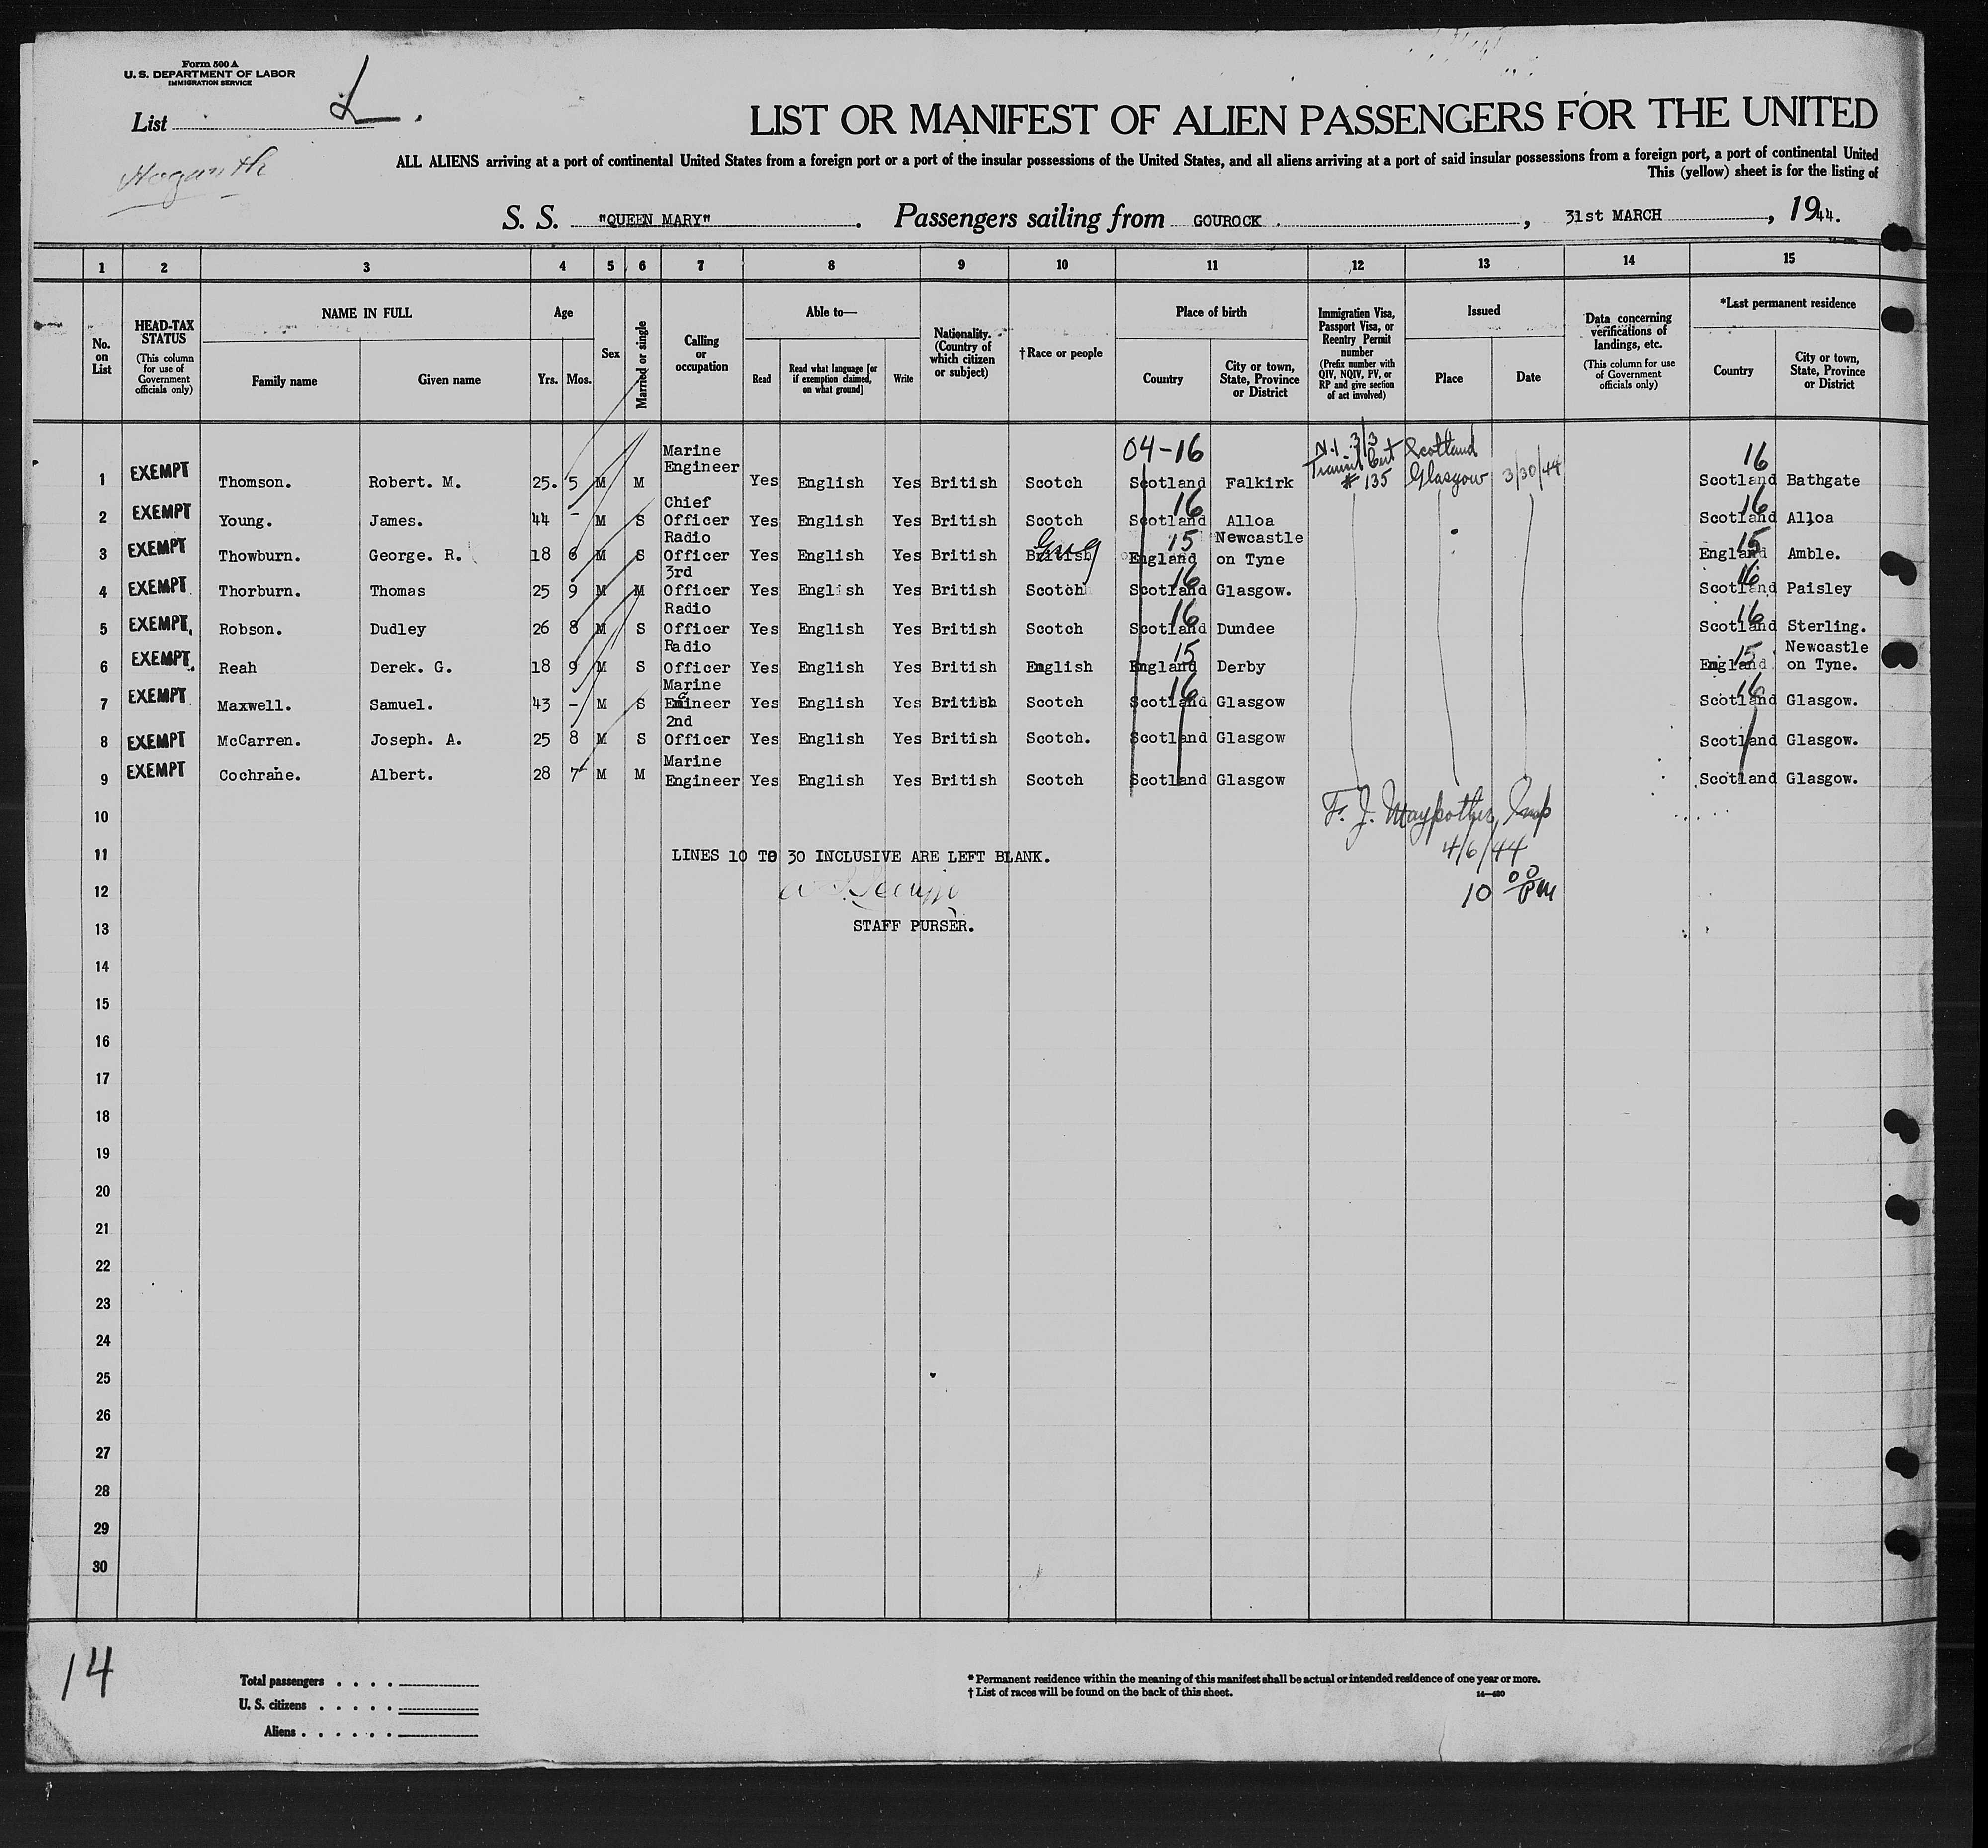 Form 500 A
U. S. DEPARTMENT OF LABOR
IMMIGRATION SERVICE
List L.
Hogarth
LIST OR MANIFEST OF ALIEN PASSENGERS FOR THE UNITED
ALL ALIENS arriving at a port of continental United States from a foreign port or a port of the insular possessions of the United States, and all aliens arriving at a port of said insular possessions from a foreign port, a port of continental United
This (yellow) sheet is for the listing of
S. S. "QUEEN MARY". Passengers sailing from GOUROCK, 31st MARCH, 1944.
1 2 3 4 5 6 7 8 9 10 11 12 13 14 15
No. on List
HEAD-TAX STATUS (This column for use of Government officials only)
NAME IN FULL Family name Given name
Age Yrs. Mos.
Sex
Married or single
Calling or occupation
Able to— Read Read what language [or if exemption claimed, on what ground] Write
Nationality. (Country of which citizen or subject)
†Race or people
Place of birth Country City or town, State, Province or District
Immigration Visa, Passport Visa, or Reentry Permit number (Prefix number with QIV, NQIV, PV, or RP and give section of act involved)
Issued Place Date
Data concerning verifications of landings, etc. (This column for use of Government officials only)
*Last permanent residence Country City or town, State, Province or District
04-16 16
1 EXEMPT Thomson. Robert. M. 25. 5 M M Marine Engineer Yes English Yes British Scotch Scotland Falkirk N.I. 3/3 Transit Cert # 135 Scotland Glasgow 3/30/44 Scotland Bathgate
2 EXEMPT Young. James. 44 - M S Chief Officer Yes English Yes British Scotch 16 Scotland Alloa 16 Scotland Alloa
3 EXEMPT Thowburn. George. R. 18 6 M S Radio Officer Yes English Yes British British Eng 15 England Newcastle on Tyne 15 England Amble.
4 EXEMPT Thorburn. Thomas 25 9 M M 3rd Officer Yes English Yes British Scotch 16 Scotland Glasgow. 16 Scotland Paisley
5 EXEMPT. Robson. Dudley 26 8 M S Radio Officer Yes English Yes British Scotch 16 Scotland Dundee 16 Scotland Sterling.
6 EXEMPT. Reah Derek. G. 18 9 M S Radio Officer Yes English Yes British English 15 England Derby 15 England Newcastle on Tyne.
7 EXEMPT Maxwell. Samuel. 43 - M S Marine Engineer Yes English Yes British Scotch 16 Scotland Glasgow 16 Scotland Glasgow.
8 EXEMPT McCarren. Joseph. A. 25 8 M S 2nd Officer Yes English Yes British Scotch. Scotland Glasgow Scotland Glasgow.
9 EXEMPT Cochrane. Albert. 28 7 M M Marine Engineer Yes English Yes British Scotch Scotland Glasgow Scotland Glasgow.
10 F. J. Maypother, Insp
11 LINES 10 TO 30 INCLUSIVE ARE LEFT BLANK. 4/6/44
12 10 00 PM
13 STAFF PURSER.
14
15
16
17
18
19
20
21
22
23
24
25
26
27
28
29
30
14
Total passengers
U. S. citizens
Aliens
* Permanent residence within the meaning of this manifest shall be actual or intended residence of one year or more.
† List of races will be found on the back of this sheet. 14—480